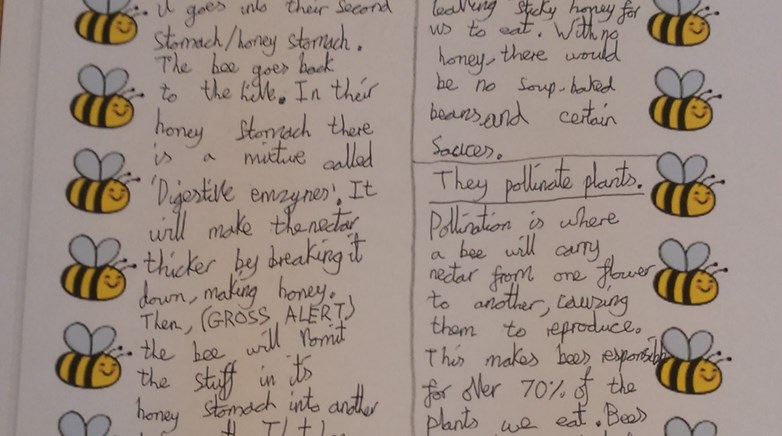 it goes into their second
stomach/honey stomach.
The bee goes back
to the hive. In their
honey stomach there
is a mixture called
'Digestive emzynes'. It
will make the nectar
thicker by breaking it
down, making honey.
Then, (GROSS ALERT)
the bee will vomit
the stuff in its
honey stomach into another
leaving sticky honey for
us to eat. With no
honey, there would
be no soup-baked
beans and certain
Sauces.
They pollinate plants.
Pollination is where
a bee will carry
nectar from one flower
to another, causing
them to reproduce.
This makes bees responsible
for over 70% of the
plants we eat. Bees